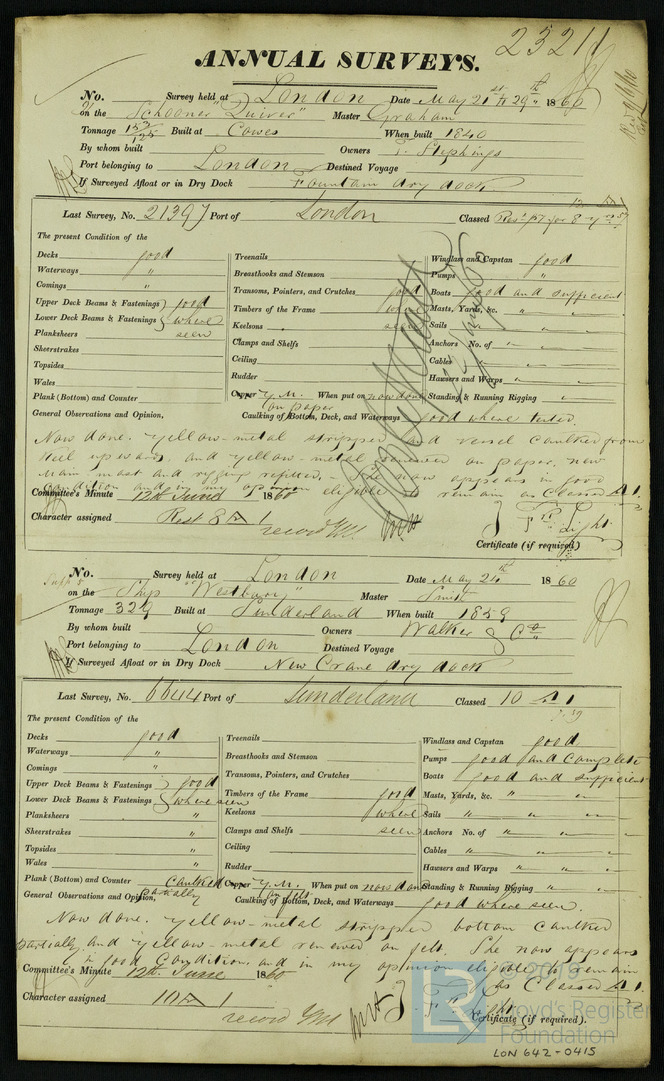 23211
ANNUAL SURVEYS.
No. Survey held at London Date May 21st & 29th 1860
on the Schooner "Quiver" Master Graham
Tonnage 153/125 Built at Cowes When built 1840
By whom built Owners T. Stephings
Port belonging to London Destined Voyage
If Surveyed Afloat or in Dry Dock Fountain dry dock
Last Survey, No. 21397 Port of London Classed
The present Condition of the
Decks good
Waterways "
Comings "
Upper Deck Beams & Fastenings good
Lower Deck Beams & Fastenings where
Planksheers seen
Sheerstrakes
Topsides
Wales
Plank (Bottom) and Counter
General Observations and Opinion,
Treenails
Breasthooks and Stemson
Transoms, Pointers, and Crutches good
Timbers of the Frame where
Keelsons seen
Clamps and Shelfs
Ceiling
Rudder
Copper Y.M. When put on now done
on paper
Caulking of Bottom, Deck, and Waterways good where tested.
Windlass and Capstan good
Pumps "
Boats good and sufficient
Masts, Yards, &c. " "
Sails " "
Anchors No. of " "
Cables " "
Hawsers and Warps " "
Standing & Running Rigging " "
Now done. Yellow-metal stripped and vessel caulked from
keel upwards, and yellow-metal renewed on paper, new
main mast and rigging refitted. She now appears in good
condition and in my opinion eligible to remain as Classed A 1.
Committee's Minute 12th June 1860
Character assigned Rest 8 A 1
record YM
F. Light
Certificate (if required)
No. Survey held at London Date May 24th 1860
on the Ship "Westbury" Master Smith
Tonnage 329 Built at Sunderland When built 1859
By whom built Owners Walker & Co
Port belonging to London Destined Voyage
If Surveyed Afloat or in Dry Dock New Crane dry dock
Last Survey, No. 6644 Port of Sunderland Classed 10 A 1
7.59
The present Condition of the
Decks good
Waterways "
Comings "
Upper Deck Beams & Fastenings good
Lower Deck Beams & Fastenings where seen
Planksheers "
Sheerstrakes "
Topsides "
Wales "
Plank (Bottom) and Counter Caulked
General Observations and Opinion, partially
Treenails
Breasthooks and Stemson
Transoms, Pointers, and Crutches
Timbers of the Frame good
Keelsons where
Clamps and Shelfs seen
Ceiling
Rudder
Copper Y.M. When put on now done
on felt
Caulking of Bottom, Deck, and Waterways good where seen.
Windlass and Capstan good
Pumps good and complete
Boats good and sufficient
Masts, Yards, &c. " "
Sails " "
Anchors No. of " "
Cables " "
Hawsers and Warps " "
Standing & Running Rigging " "
Now done. Yellow-metal stripped bottom caulked
partially and yellow-metal renewed on felt. She now appears
in good condition, and in my opinion eligible to remain
as Classed A 1.
Committee's Minute 12th June 1860
Character assigned 10 A 1
record YM
F. Light
Certificate (if required).
© 2019
Lloyd's Register
Foundation
LR
LON 642-0415